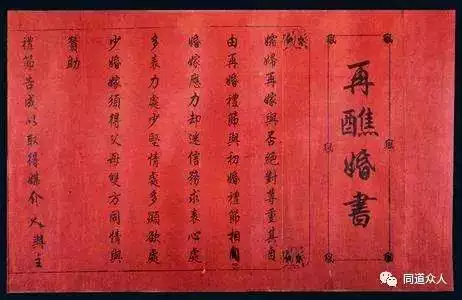 再醮婚書
孀婦再嫁與否絕對尊重其自
由再婚禮節與初婚禮節相同
婚嫁應力却迷信務求衷心處
多衷力處少堅情處多願欲處
少婚嫁須得父母雙方同情與
贊助
禮節告成以取得媒介人與主
同道众人